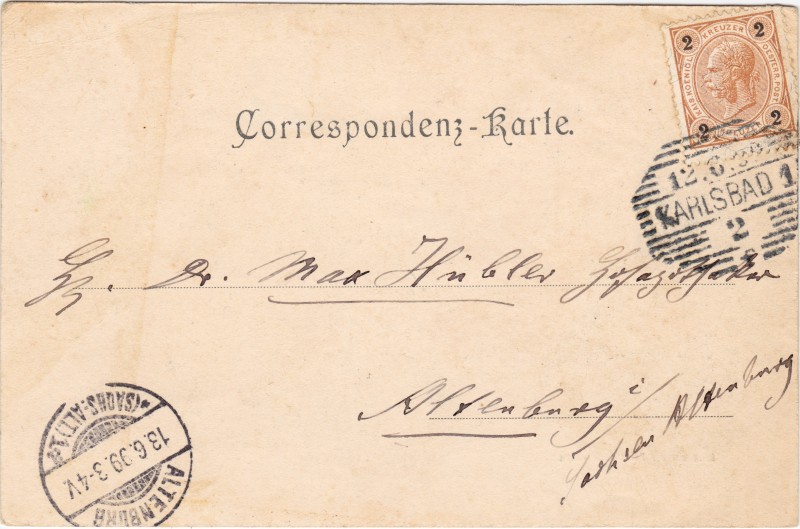 2 KREUZER 2
KAIS. KOENIGL. OESTERR. POST
2 2
Correspondenz-Karte.
12.6.99
KARLSBAD 1
2
Dr. Max Hübler Hofapotheker
Altenburg i/
Sachsen Altenburg
(SACHS-ALT) 1
13.6.99.3-4V.
ALTENBURG